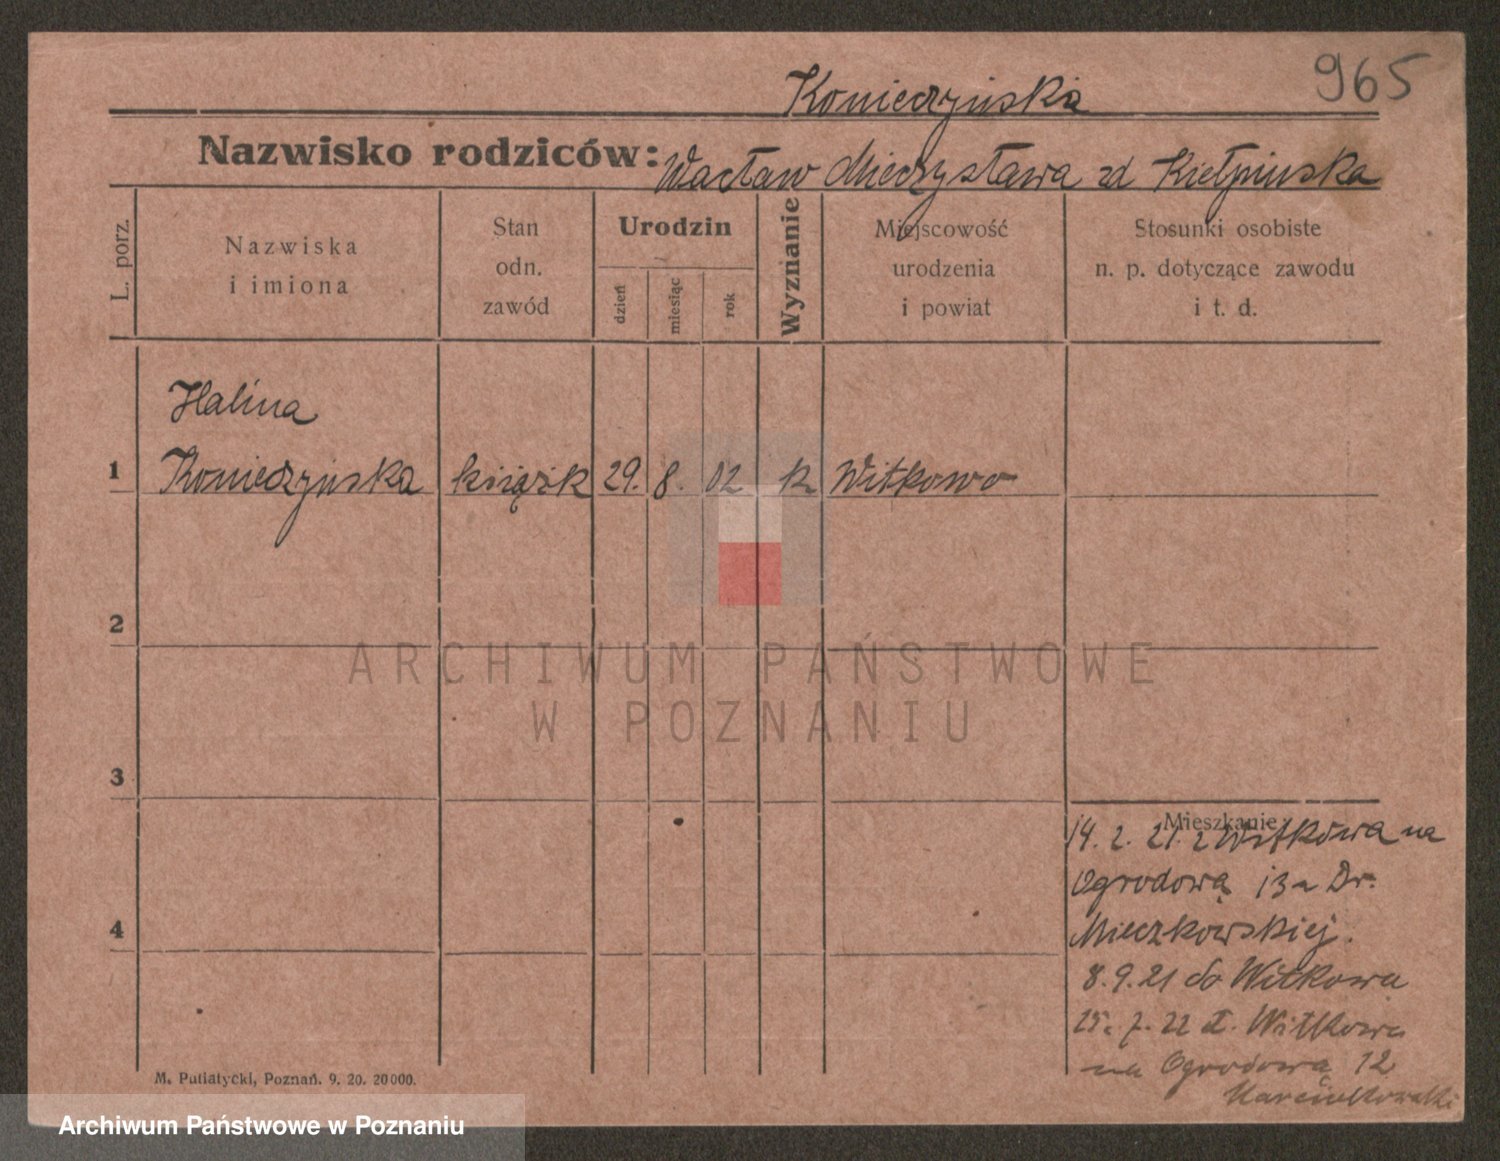 965
Konieczyńska
Nazwisko rodziców: Wacław Mieczysława zd Kiełpińska
L. porz.
Nazwiska
i imiona
Stan
odn.
zawód
Urodzin
dzień
miesiąc
rok
Wyznanie
Miejscowość
urodzenia
i powiat
Stosunki osobiste
n. p. dotyczące zawodu
i t. d.
Halina
1 Konieczyńska książk 29. 8. 02 k Witkowo
2
ARCHIWUM PAŃSTWOWE
W POZNANIU
3
Mieszkanie:
14. 2. 21. z Witkowa na
Ogrodową 13 a Dr.
4 Mieczkowskiej.
8.9.21 do Witkowa
25. 7. 22 z Witkowa
na Ogrodową 12
M. Putiatycki, Poznań. 9. 20. 20000.
Archiwum Państwowe w Poznaniu